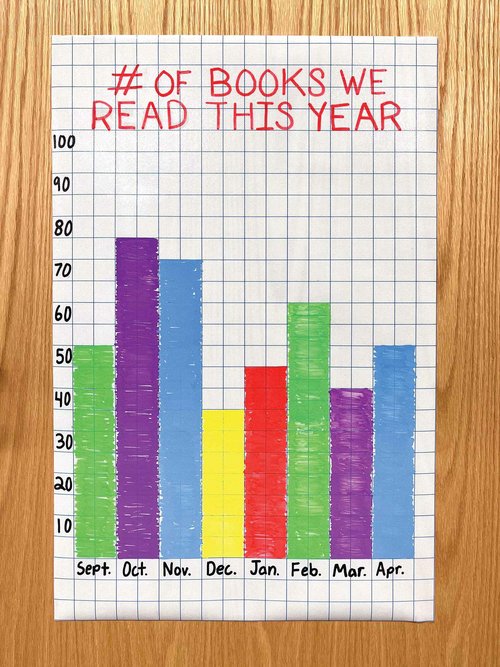 # OF BOOKS WE
READ THIS YEAR
100
90
80
70
60
50
40
30
20
10
Sept. Oct. Nov. Dec. Jan. Feb. Mar. Apr.